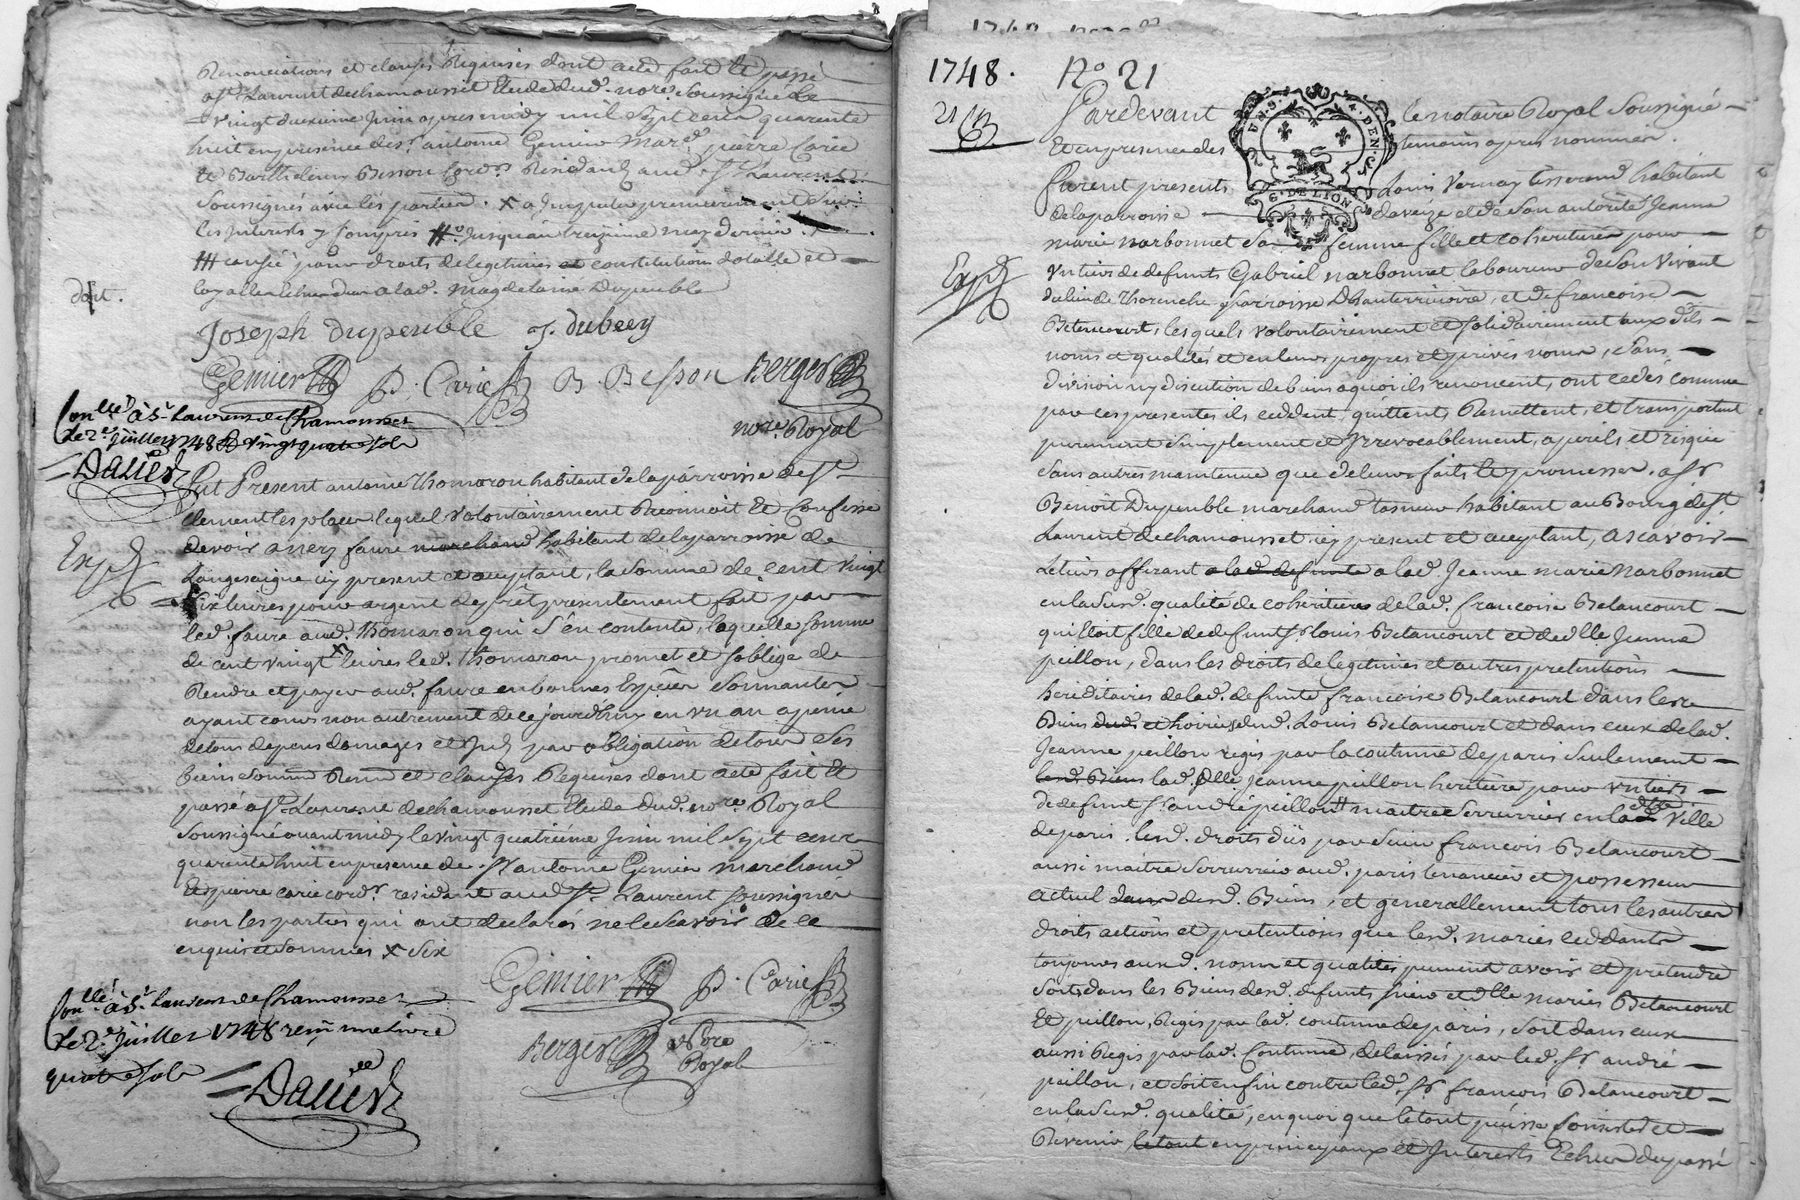 Renonciations et clauses Requises dont acte fait et passé
a St Laurent dechamousset Etude dud. nore. Soussigné le
vingt deuxieme juin apres midy mil Sept cents quarante
huit en presence de sr. antoine Genier Mard. pierre Carie
et Barthelemy Besson Cord.rs Residants aud. St Laurent
Soussignés avec les parties. x a imputer premierement sur
les Interests y compris #. Jusquau treizieme may dernier.
### causée pour droits de legitimes et constitution dotalle et
a lad. Magdelaine Dupeuble
dont.
Joseph dupeuble J. dubecy
Genier P. Carie B. Besson Berger
nore. Royal
Conllé à St Laurens de Chamousset
Le 2e. juillet 1748 R vingt quatre sols
Dallier
Fut Present antoine Thomaron habitant de la parroisse de St
Clement les places lequel volontairement Reconnoit Et Confesse
devoir a nery faure marchand habitant de la parroisse de
Longesaigne icy present et acceptant, la Somme de cent vingt
Six livres pour argent de prêt presentement fait par
led. faure aud. Thomaron qui s'en contente, laquelle somme
de cent vingt x livres led. Thomaron promet et soblige de
Rendre et payer aud. faure en bonnes Espèces Sonnantes
ayant cours non autrement de ce jourdhuy en un an a peine
de tous depens domages et Jnts par obligation de tous Ses
biens Soumn Renn et clauses Requises dont acte fait Et
passé a St Laurent dechamousset Etude dud. nore Royal
Soussigné avant midy le vingt quatrième Juin mil Sept cents
quarante huit en presence de sr antoine Genier marchand
Et pierre carie cord.r residant aud St. Laurent soussignés
non les parties qui ont declarés ne le scavoir de ce
enquis et Sommés x Six
Expé
Genier P. Carie
Berger Nore
Royal
Conllé à St Laurens de Chamousset
Le 2e. Juillet 1748 reçu une livre
quatre sols
Dallier
1748. No 21
21
Pardevant le notaire Royal Soussigné
Et en presence des temoins apres nommés
furent presents Louis Vernay tisserand habitant
de la parroisse daveize et de son autorité Jeanne
marie narbonnet sa femme fille et coheritiere pour
Expé
un tiers de defunts Gabriel narbonnet laboureur de Son vivant
du lieu de Thorenche parroisse Dhauterivoire, et de francoise
Betencourt, lesquels volontairement et solidairement aux dits
noms et qualités et en leurs propres et privés noms, Sans
division ny discution de biens a quoi ils renoncent, ont cedés comme
par ces presentes ils ceddent, quittent Remettent, et transportent
purement Simplement et Irrevocablement, a perils et risque
Sans autres maintenue que de leurs faits et promesses. a Sr
Benoit Dupeuble marchand tanneur habitant au Bourg de St
Laurent dechamousset icy present et acceptant, a scavoir
Le tiers afferant a lad. defunte a lad. Jeanne marie Narbonnet
en lad susd. qualité de coheritiere de lad. francoise Betancourt
qui Etoit fille de defunt Sr. Louis Betancourt et de dlle Jeanne
peillon, dans les droits de legitimes et autres pretentions
hereditaires de lad. defunte francoise Betancourt dans les
Biens dud. et Betancourt et dans ceux de lad.
Jeanne peillon regis par la coutume de paris Seulement
lesd. Biens lad. dlle Jeanne peillon heritiere pour un tiers
de defunt Sr. andré peillon maitre Serrurier en lad. ville
de paris. lesd. droits dûs par Sieur francois Betancourt
aussi maitre Serrurier aud. paris tenancier et possesseur
actuel dans desd. Biens, et generallement tous les autres
droits actions et pretentions que lesd. mariés ceddants
toujours auxd. noms et qualités peuvent avoir et pretendre
Soit dans les Biens desd. defunts sieur et dlle mariés Betancourt
Et peillon, Regis par lad. coutume de paris, Soit dans ceux
aussi Regis par lad. Coutume, delaissés par led. Sr. andré
peillon, et Soit enfin contre led. Sr. francois Betancourt
en lad susd. qualité, en quoi que le tout puisse Consister et
Revenir, le tout en principaux et Interests Echus du passé